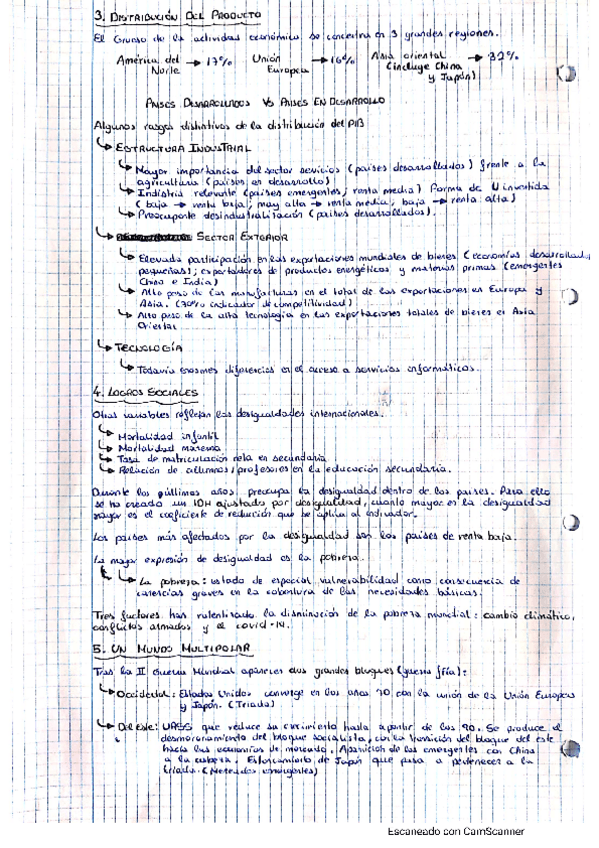 3. DISTRIBUCIÓN DEL PRODUCTO
El Grueso de la actividad económica se concentra en 3 grandes regiones.
América del Norte → 17% Unión Europea → 16% Asia oriental (incluye China y Japón) → 32%
PAISES DESARROLLADOS VS PAISES EN DESARROLLO
Algunos rasgos distintivos de la distribución del PIB
↳ ESTRUCTURA INDUSTRIAL
↳ Mayor importancia del sector servicios (países desarrollados) frente a la
agricultura (países en desarrollo)
↳ Industria relevante (países emergentes; renta media) Forma de U invertida
(baja → renta baja; muy alta → renta media; baja → renta alta)
↳ Preocupante desindustrialización (países desarrollados).
↳ SECTOR EXTERIOR
↳ Elevada participación en las exportaciones mundiales de bienes (economías desarrolladas,
pequeñas); exportadores de productos energéticos y materias primas (emergentes
China e India)
↳ Alto peso de las manufacturas en el total de las exportaciones en Europa y
Asia. (indicador de competitividad)
↳ Alto peso de la alta tecnología en las exportaciones totales de bienes en Asia
Oriental
↳ TECNOLOGÍA
↳ Todavía enormes diferencias en el acceso a servicios informáticos.
4. LOGROS SOCIALES
Otras variables reflejan las desigualdades internacionales.
↳ Mortalidad infantil
↳ Mortalidad materna
↳ Tasa de matriculación neta en secundaria
↳ Relación de alumnos/profesores en la educación secundaria.
Durante los últimos años, preocupa la desigualdad dentro de los países. Para ello
se ha creado un IDH ajustado por desigualdad, cuanto mayor es la desigualdad
mayor es el coeficiente de reducción que se aplica al indicador.
Los países más afectados por la desigualdad son los países de renta baja.
La mayor expresión de desigualdad es la pobreza.
↳ La pobreza: estado de especial vulnerabilidad como consecuencia de
carencias graves en la cobertura de las necesidades básicas.
Tres factores han ralentizado la disminución de la pobreza mundial: cambio climático,
conflictos armados y el covid-19.
5. UN MUNDO MULTIPOLAR
Tras la II Guerra Mundial aparecen dos grandes bloques (guerra fría):
↳ Occidental: Estados Unidos converge en los años 70 con la unión de la Unión Europea
y Japón. (Triada)
↳ Del este: URSS que reduce su crecimiento hasta a partir de los 90. Se produce el
desmoronamiento del bloque socialista, con la transición del bloque del este
hacia las economías de mercado. Aparición de los emergentes con China
a la cabeza. Estancamiento de Japón que pasa a pertenecer a la
triada. (Mercados emergentes)
Escaneado con CamScanner